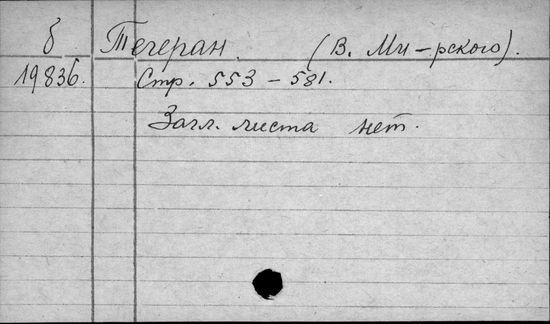 б Тегеран. (В. Ми-рского).
19836. Стр. 553-581.
Загл. листа нет.